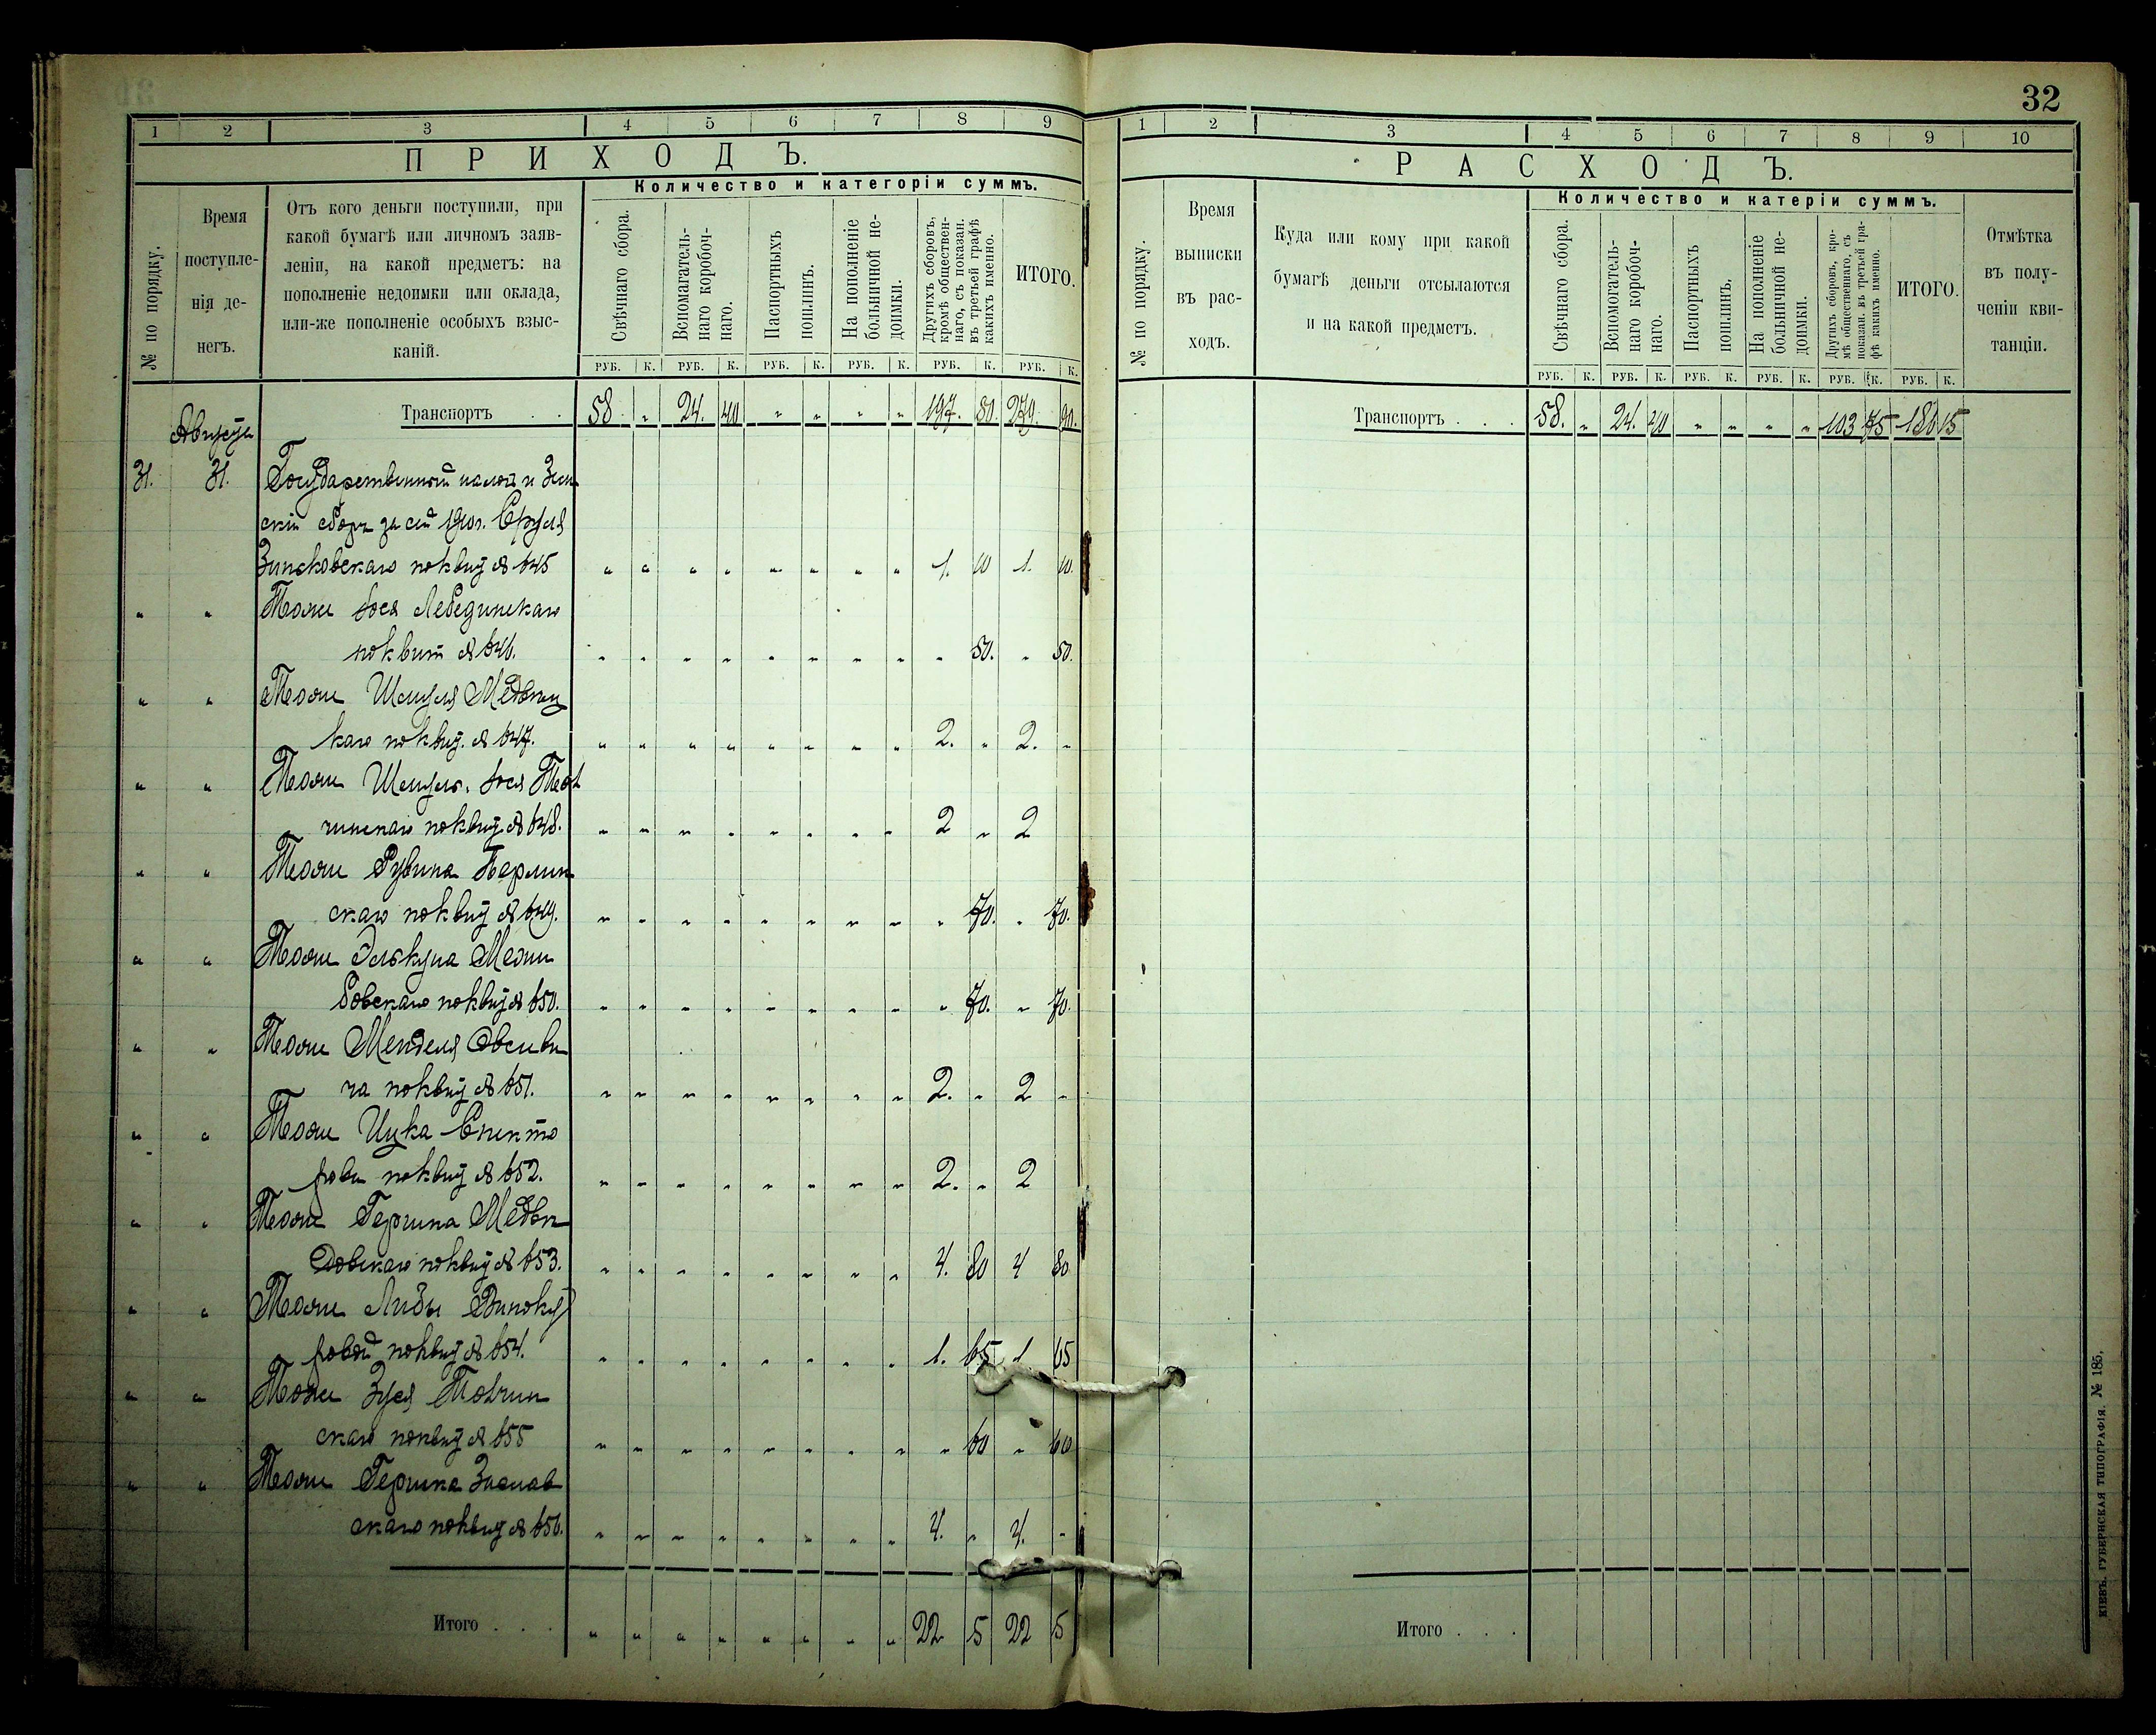 32
1 2 3 4 5 6 7 8 9
ПРИХОДЪ.
Количество и категоріи суммъ.
№ по порядку.
Время
поступле-
нія де-
негъ.
Отъ кого деньги поступили, при
какой бумагѣ или личномъ заяв-
леніи, на какой предметъ: на
пополненіе недоимки или оклада,
или-же пополненіе особыхъ взыс-
каній.
Свѣчнаго сбора.
Вспомагатель-
наго коробоч-
наго.
Паспортныхъ
пошлинъ.
На пополненіе
больничной не-
доимки.
Другихъ сборовъ,
кромѣ обществен-
наго, съ показан.
въ третьей графѣ
какихъ именно.
ИТОГО.
РУБ. К. РУБ. К. РУБ. К. РУБ. К. РУБ. К. РУБ. К.
Транспортъ . . 58 „ 24. 40 „ „ „ „ 197. 80. 279. 90.
Августа
31. 31. Государственный налог и Зем
скій сборъ за сей 1910г. Сруля
Зиньковскаго по квит № 645 „ „ „ „ „ „ „ „ 1. 10 1. 10.
„ „ Тоже Іося Лебединскаго
по квит № 646. „ „ „ „ „ „ „ „ „ 50. „ 50.
„ „ Тоже Шмуля
каго по квит. № 647. „ „ „ „ „ „ „ „ 2. „ 2. „
„ „ Тоже Шмуль. Іося
чинскаго по квит № 648. „ „ „ „ „ „ „ „ 2 „ 2
„ „ Тоже Рувина Перлин
скаго по квит № 649. „ „ „ „ „ „ „ „ „ 70. „ 70.
„ „ Тоже
бовскаго по квит № 650. „ „ „ „ „ „ „ „ „ 70. „ 70.
„ „ Тоже Менделя Овсиеви
ча по квит № 651. „ „ „ „ „ „ „ „ 2. „ 2 „
„ „ Тоже Ицка Спекто
рова по квит № 652. „ „ „ „ „ „ „ „ 2. „ 2
„ „ Тоже Гершка Медве
довскаго по квит № 653. „ „ „ „ „ „ „ „ 4. 80 4 80
„ „ Тоже Либы Виноку
ровой по квит № 654. „ „ „ „ „ „ „ „ 1. 65 1 65
„ „ Тоже Зуся Товчин
скаго по квит № 655 „ „ „ „ „ „ „ „ „ 60 „ 60
„ „ Тоже Гершка Заслав
скаго по квит № 656. „ „ „ „ „ „ „ „ 4. „ 4. „
Итого . . . „ „ „ „ „ „ „ „ 22 5 22 5
1 2 3 4 5 6 7 8 9 10
РАСХОДЪ.
Количество и катеріи суммъ.
№ по порядку.
Время
выписки
въ рас-
ходъ.
Куда или кому при какой
бумагѣ деньги отсылаются
и на какой предметъ.
Свѣчнаго сбора.
Вспомогатель-
наго коробоч-
наго.
Паспортныхъ
пошлинъ.
На пополненіе
больничной не-
доимки.
Другихъ сборовъ, кро-
мѣ общественнаго, съ
показан. въ третьей гра-
фѣ какихъ именно.
ИТОГО.
Отмѣтка
въ полу-
ченіи кви-
танціи.
РУБ. К. РУБ. К. РУБ. К. РУБ. К. РУБ. К. РУБ. К.
Транспортъ . . . 58. „ 24. 40 „ „ „ „ 103 75 186 15
Итого . . .
КІЕВЪ. ГУБЕРНСКАЯ ТИПОГРАФІЯ. № 185,